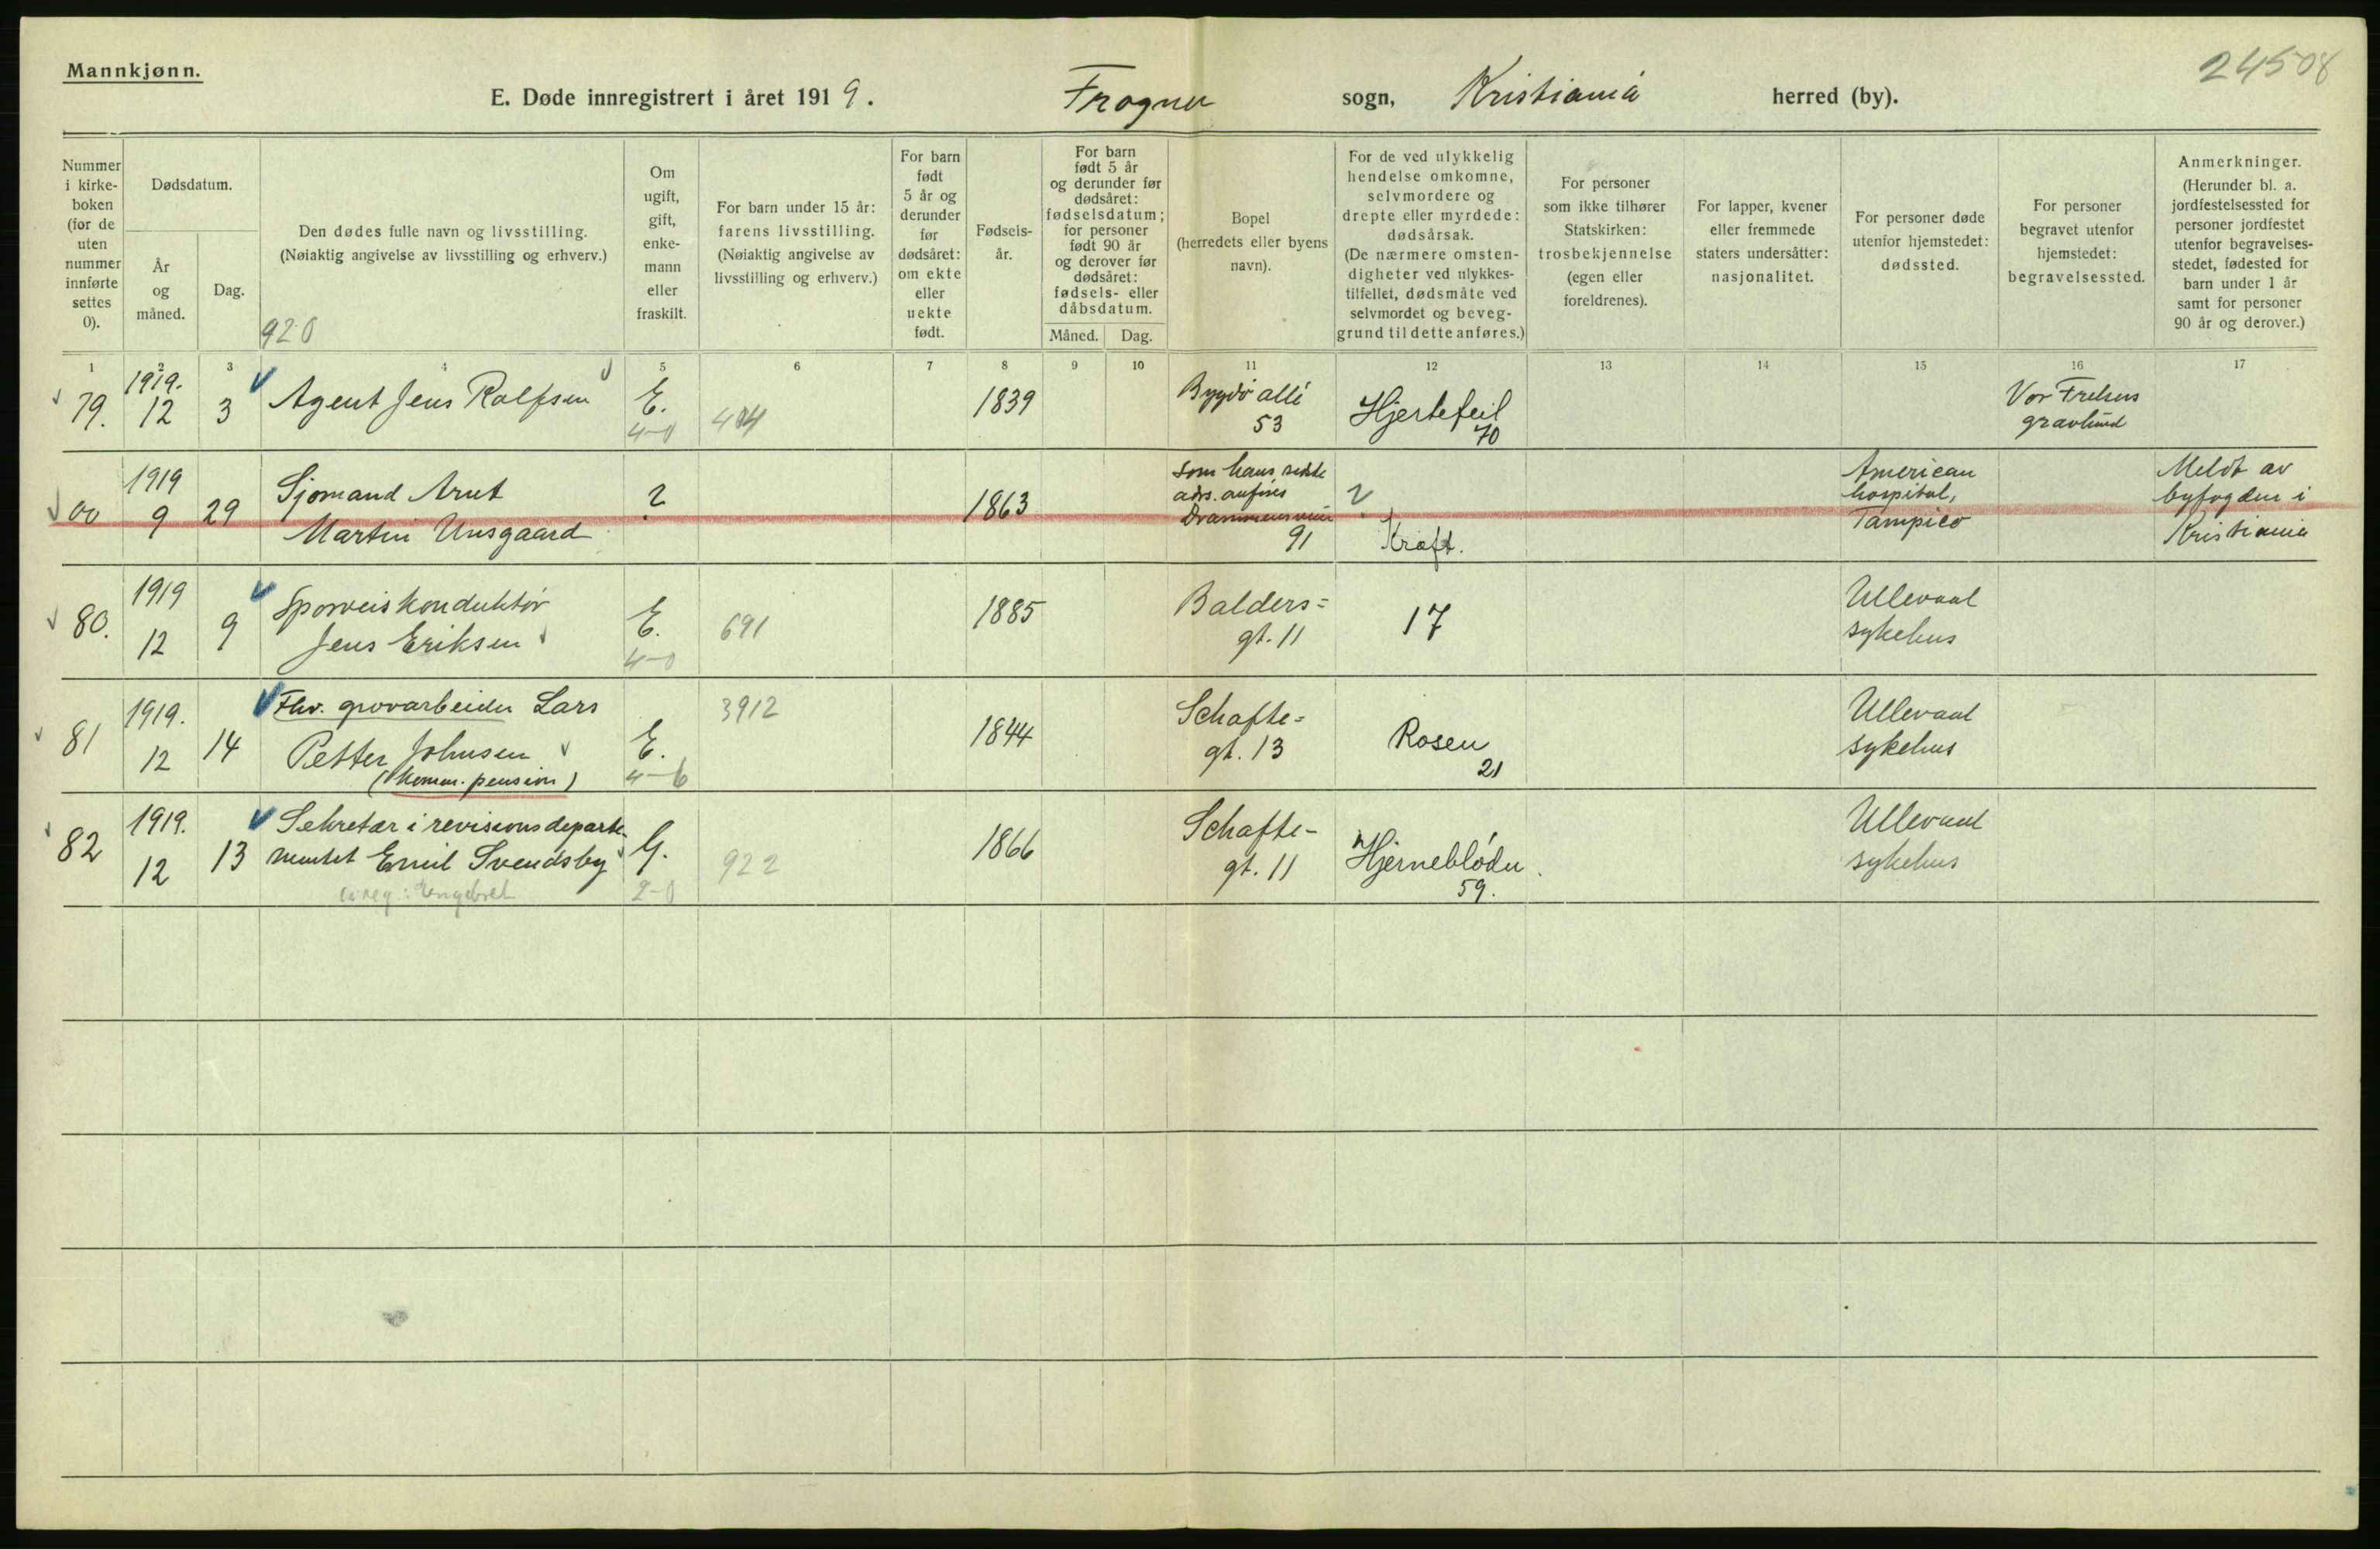 24508
Mannkjønn.
E. Døde innregistrert i året 1919. Frogner sogn, Kristiania herred (by).
Nummer i kirke- boken (for de uten nummer innførte settes 0).
Dødsdatum.
År og måned.
Dag.
Den dødes fulle navn og livsstilling.
(Nøiaktig angivelse av livsstilling og erhverv.)
920
Om ugift, gift, enke- mann eller fraskilt.
For barn under 15 år: farens livsstilling.
(Nøiaktig angivelse av livsstilling og erhverv.)
For barn født 5 år og derunder før dødsåret: om ekte eller uekte født.
Fødsels- år.
For barn født 5 år og derunder før dødsåret: fødselsdatum; for personer født 90 år og derover før dødsåret: fødsels- eller dåbsdatum.
Måned. Dag.
Bopel (herredets eller byens navn).
For de ved ulykkelig hendelse omkomne, selvmordere og drepte eller myrdede: dødsårsak.
(De nærmere omsten- digheter ved ulykkes- tilfellet, dødsmåte ved selvmordet og beveg- grund til dette anføres.)
For personer som ikke tilhører Statskirken: trosbekjennelse (egen eller foreldrenes).
For lapper, kvener eller fremmede staters undersåtter: nasjonalitet.
For personer døde utenfor hjemstedet: dødssted.
For personer begravet utenfor hjemstedet: begravelsessted.
Anmerkninger.
(Herunder bl. a. jordfestelsessted for personer jordfestet utenfor begravelses- stedet, fødested for barn under 1 år samt for personer 90 år og derover.)
1 2 3 4 5 6 7 8 9 10 11 12 13 14 15 16 17
79. 1919. 12 3 Agent Jens Rolfsen E. 4-0 1839 Bygdø allé 53 Hjertefeil 70 Vor Frelsers gravlund
00 1919 9 29 Sjømand Arnt Martin Unsgaard ? 1863 som hans sidste adrs. anføres Drammensveien 91 ? Kraft. American hospital, Tampico Meldt av byfogden i Kristiania
80. 1919 12 9 Sporveiskonduktør Jens Eriksen E. 4-0 691 1885 Balders= gt. 11 17 Ullevaal sykehus
81 1919. 12 14 Fhv. grovarbeider Lars Petter Johnsen (komm. pension) E. 4-6 3912 1844 Schafte= gt. 13 Rosen 21 Ullevaal sykehus
82 1919. 12 13 Sekretær i revisionsdeparte- mentet Emil Svendsby G. 2-0 922 1866 Schafte- gt. 11 Hjerneblødn. 59. Ullevaal sykehus